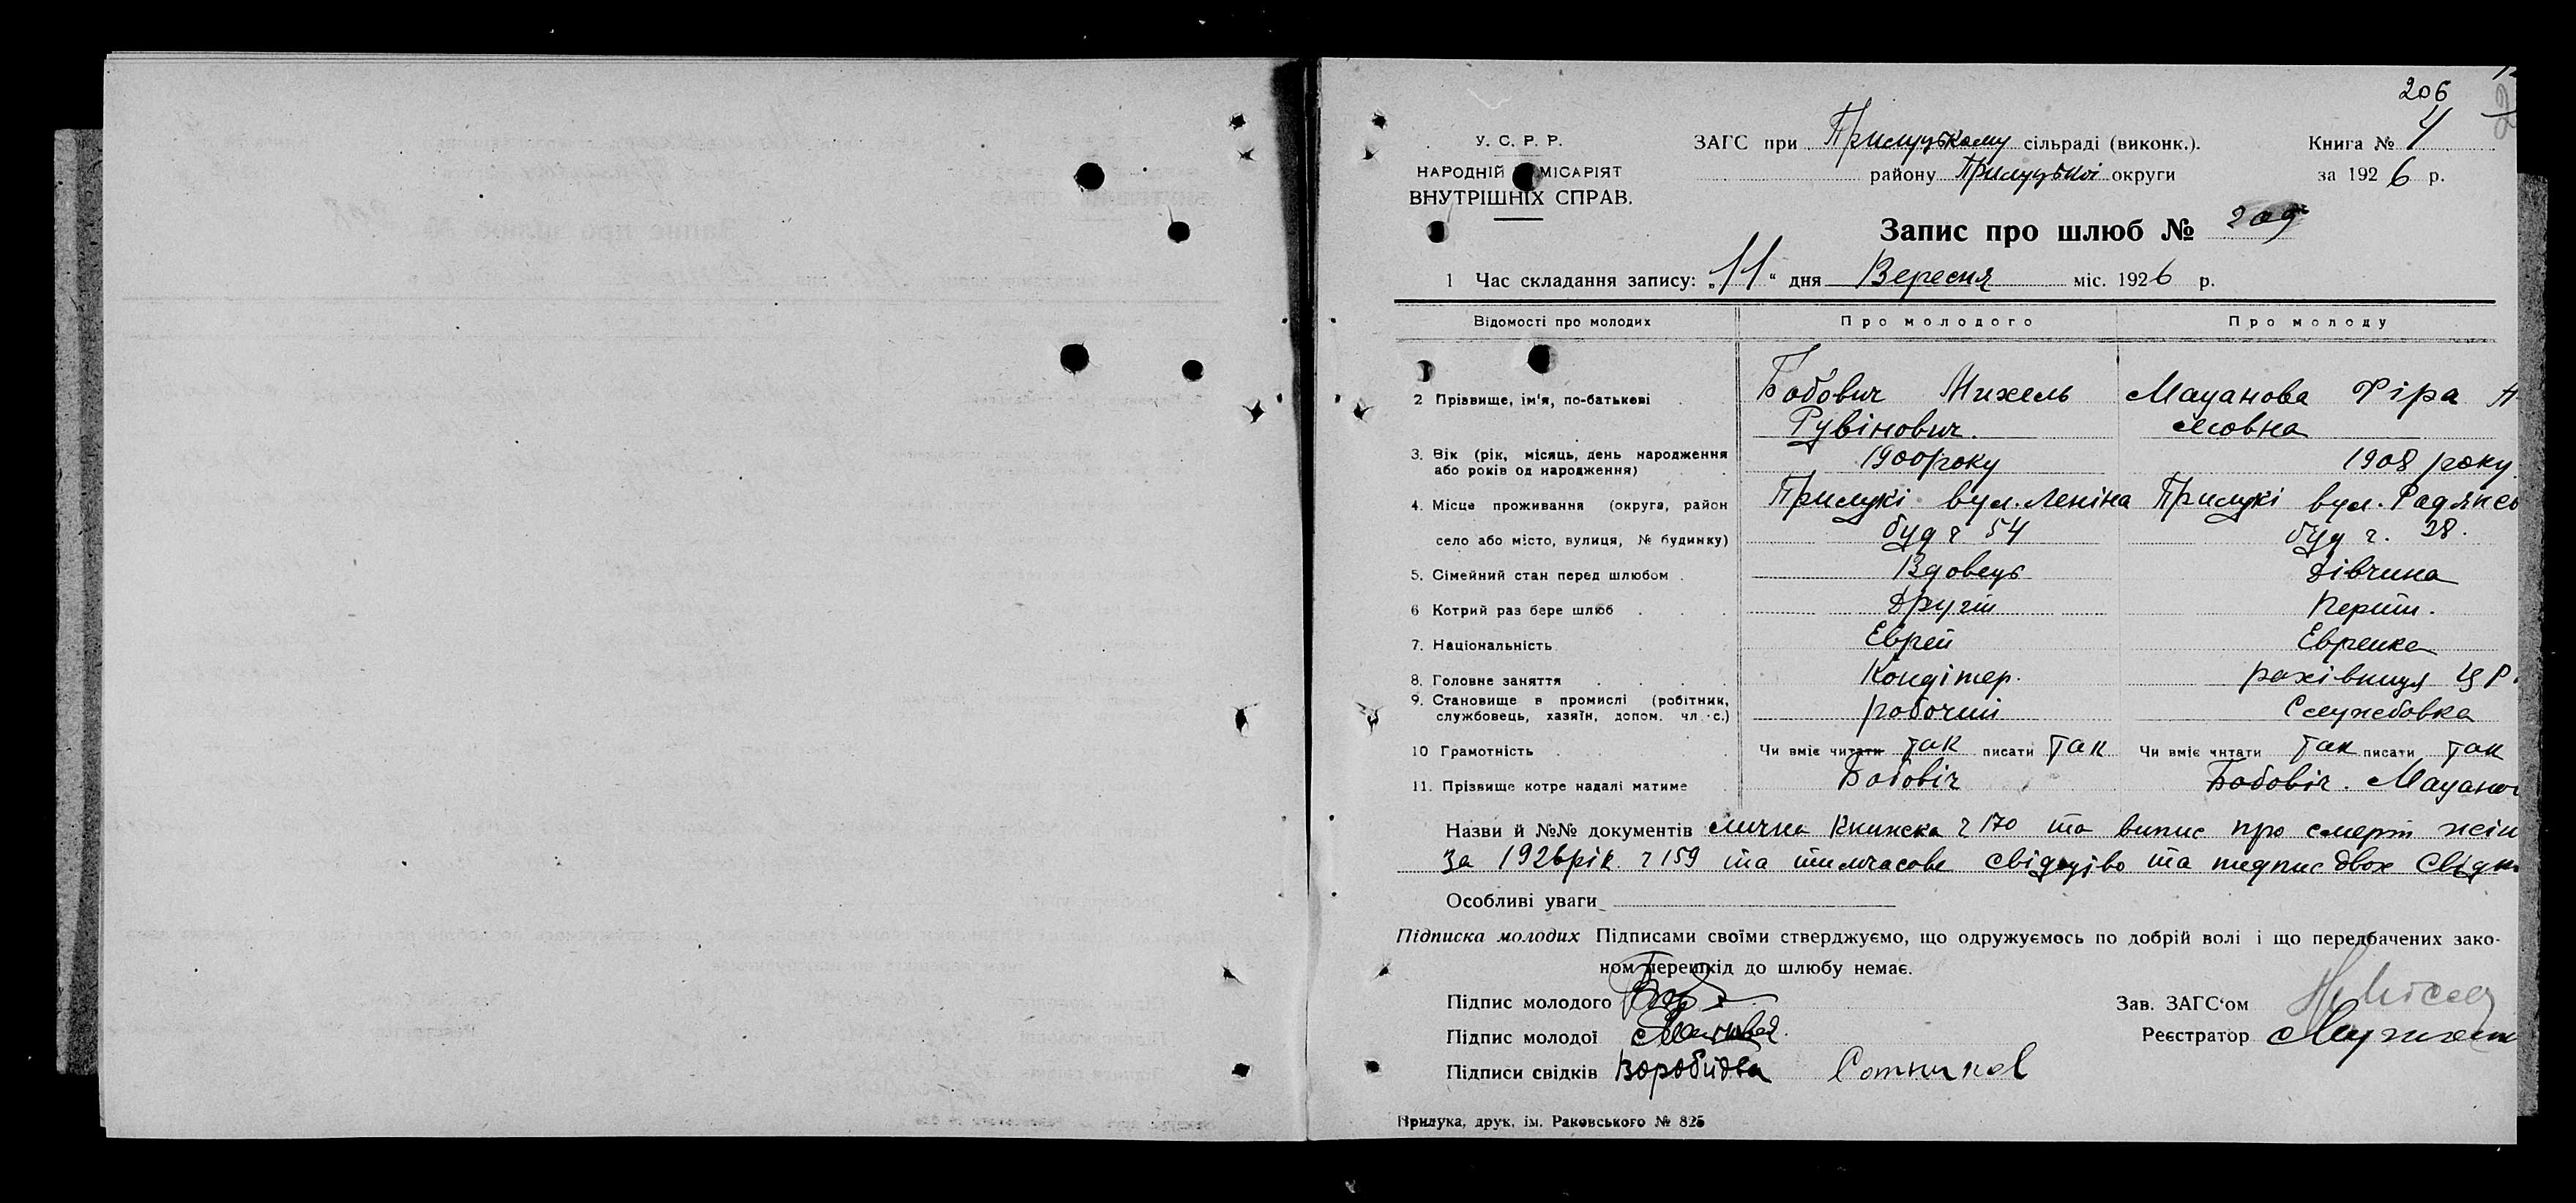 206
У. С. Р. Р.
НАРОДНІЙ КОМІСАРІЯТ
ВНУТРІШНІХ СПРАВ.
ЗАГС при Прилуцькому сільраді (виконк.).
району Прилуцької округи
Книга № 4
за 1926 р.
Запис про шлюб № 209
1 Час складання запису: „11“ дня Вересня міс. 1926 р.
Відомості про молодих Про молодого Про молоду
2 Прізвище, ім'я, по-батькові Бобович Михель Мацанова Фіра А
Рувінович. мовна
3. Вік (рік, місяць, день народження 1900 року 1908 року
або років од народження)
4. Місце проживання (округа, район Прилукі вул. Леніна Прилукі вул. Радянсь
село або місто, вулиця, № будинку) буд ч 54 буд ч. 28.
5. Сімейний стан перед шлюбом Вдовець Дівчина
6 Котрий раз бере шлюб Другий Перший.
7. Національність Еврей Еврейка
8. Головне заняття Кондітер. рахівниця ЦР
9. Становище в промислі (робітник, робочий Службовка
службовець, хазяїн, допом. чл. с.)
10 Грамотність Чи вміє читати так писати так Чи вміє читати так писати так
11. Прізвище котре надалі матиме Бобовіч Бобовіч. Мацанов
Назви й №№ документів лична Книжка ч 170 та випис про смерть жін
за 1926 рік ч 159 та тимчасове та підпис двох Свідк
Особливі уваги
Підписка молодих Підписами своїми стверджуємо, що одружуємось по добрій волі і що передбачених зако-
ном перешкід до шлюбу немає.
Підпис молодого
Зав. ЗАГС‘ом
Підпис молодої
Реєстратор
Підписи свідків Сотников
Прилука, друк. ім. Раковського № 825